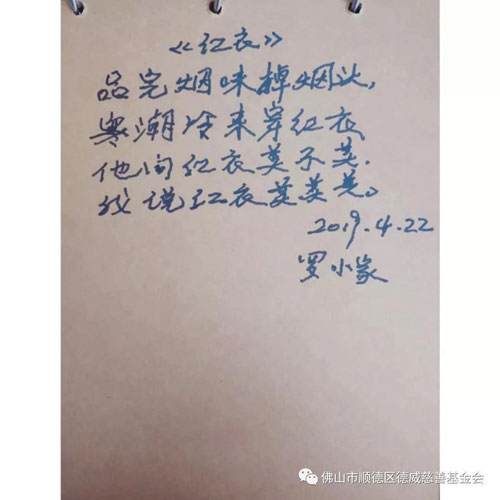 《红衣》
品完烟味掉烟头,
寒潮冷来穿红衣
他问红衣美不美.
我说红衣美美美。
2019.4.22
罗小家
佛山市顺德区德威慈善基金会